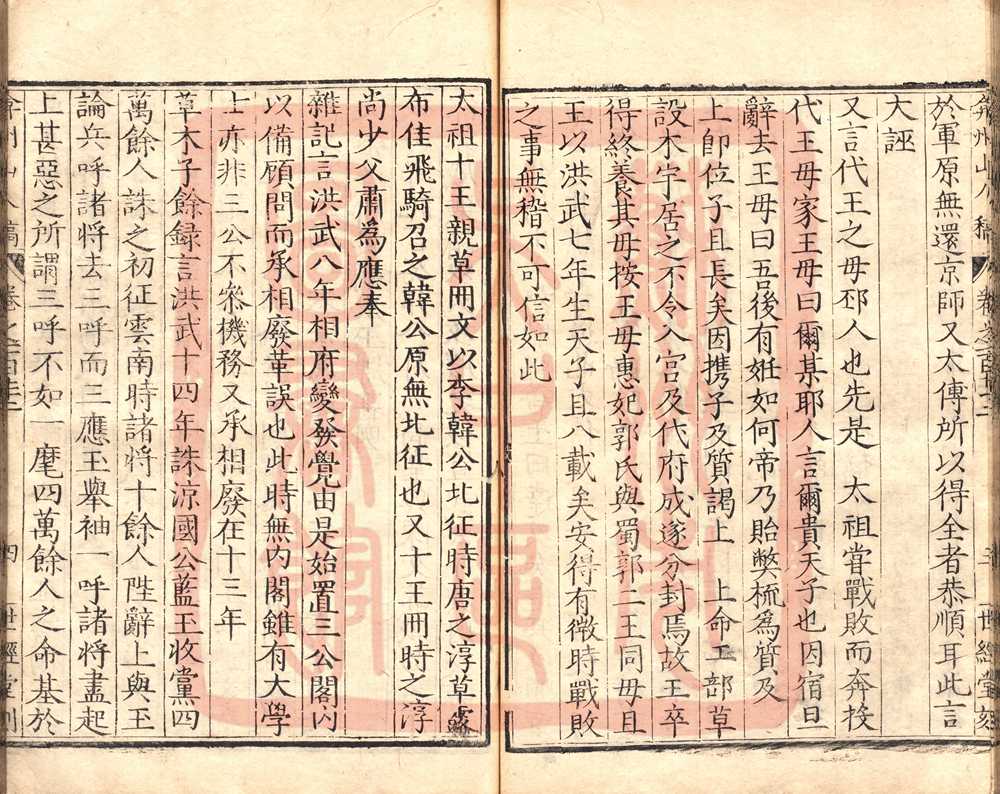 弇州山人稿 卷之一百四十二 三 世經堂刻
於軍原無還京師又太傅所以得全者恭順耳此言
大誣
又言代王之母邳人也先是 太祖嘗戰敗而奔投
代王母家王母曰爾某耶人言爾貴天子也因宿旦
辭去王母曰吾後有姙如何帝乃貽弊梳為質及
上卽位子且長矣因携子及質謁上 上命工部草
設木宇居之不令入宫及代府成遂分封焉故王卒
得終養其母按王母惠妃郭氏與蜀郭二王同母且
王以洪武七年生天子且八載矣安得有微時戰敗
之事無稽不可信如此
太祖十王親草冊文以李韓公北征時唐之淳草露
布佳飛騎召之韓公原無北征也又十王冊時之淳
尚少父肅為應奉
雜記言洪武八年相府變發覺由是始置三公閣内
以備顧問而承相廢革誤也此時無内閣雖有大學
士亦非三公不叅機務又承相廢在十三年
草木子餘録言洪武十四年誅涼國公藍玉收黨四
萬餘人誅之初征雲南時諸将十餘人陛辭上與玉
論兵呼諸将去三呼而三應玉舉袖一呼諸将盡起
上甚惡之所謂三呼不如一麾四萬餘人之命基於
弇州山人稿 卷之一百四十二 四 世經堂刻